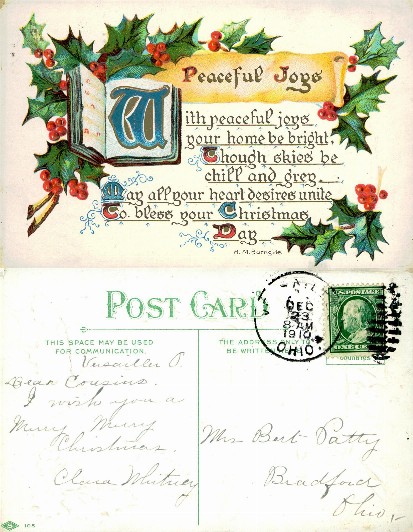 Peaceful Joys
With peaceful joys
your home be bright,
Though skies be
chill and grey
May all your heart desires unite
To bless your Christmas
Day
H. M. Burnside.
POST CARD
THIS SPACE MAY BE USED
FOR COMMUNICATION.
THE ADDRESS ONLY TO
BE WRITTEN
DEC
23
8 AM
1910
OHIO.
U.S. POSTAGE
Versailles O.
Dear Cousins.
I wish you a
Merry Merry
Christmas.
Clara Whitney
Mrs Bert Patty
Bradford
Ohio,